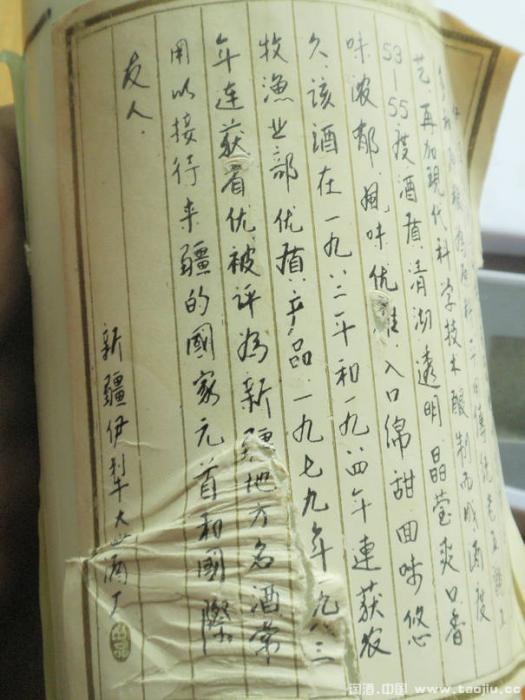 粮为原料
的傳统老五
艺.再加現代科学技术酿制而成酒度
53-55度酒質.清湖透明.晶莹爽口香
味浓郁.風味优雅.入口绵甜回味悠
久.该酒在一九八二年和一九八四年連获农
牧渔业部优質产品.一九七九年 九八三
年连获省优.被评為新疆地方名酒常
用以接待来疆的國家元首和國際
友人.
新疆伊犁大曲酒厂
出品
国酒.中国 www.taojiu.com